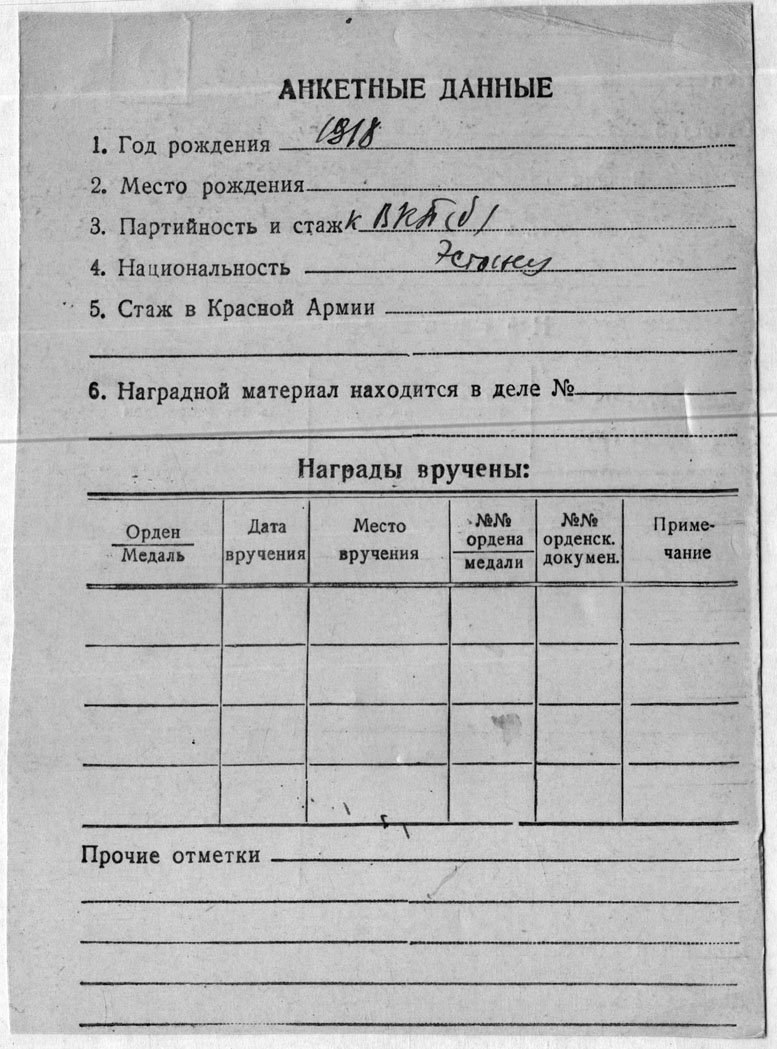 АНКЕТНЫЕ ДАННЫЕ
1. Год рождения 1918
2. Место рождения
3. Партийность и стаж К ВКП(б)
4. Национальность Эстонец
5. Стаж в Красной Армии
6. Наградной материал находится в деле №
Награды вручены:
Орден
Медаль
Дата
вручения
Место
вручения
№№
ордена
медали
№№
орденск.
докумен.
Приме-
чание
Прочие отметки